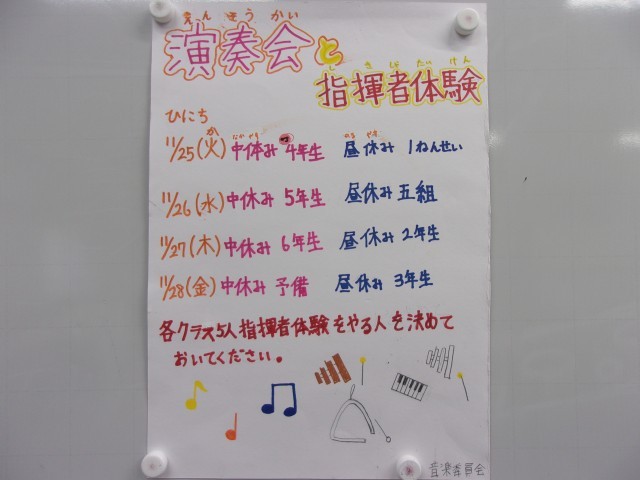 えんそうかい
演奏会と
しきしゃたいけん
指揮者体験
ひにち
11/25(火) 中休み 4年生 昼休み 1ねんせい
11/26(水) 中休み 5年生 昼休み 五組
11/27(木) 中休み 6年生 昼休み 2年生
11/28(金) 中休み 予備 昼休み 3年生
各クラス5人指揮者体験をやる人を決めて
おいてください。
音楽委員会